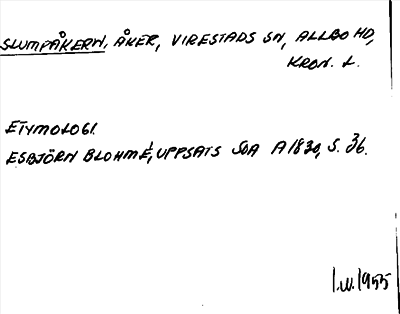 SLUMPÅKERN, ÅKER, VIRESTADS SN, ALLBO HD,
KRON. L.
ETYMOLOGI.
ESBJÖRN BLOHMÉ, UPPSATS SOA A 1830, S. 36.
I.W. 1955